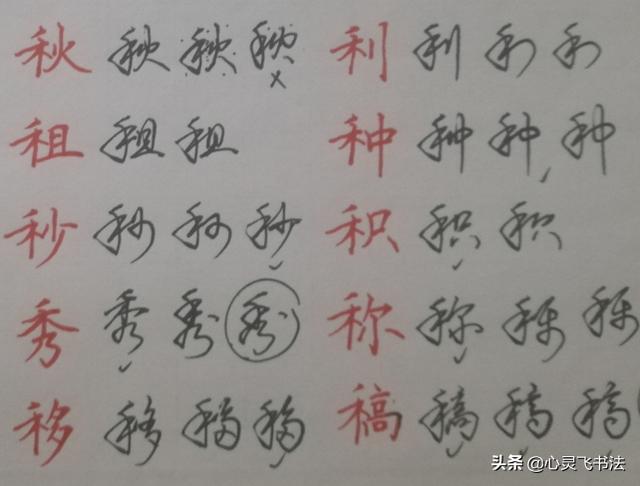 秋 秋 秋 秋 利 利 利 利
租 租 租 种 种 种 种
秒 秒 秒 秒 积 积 积
秀 秀 秀 秀 称 称 称 称
移 移 移 移 稿 稿 稿 稿
头条 @心灵飞书法